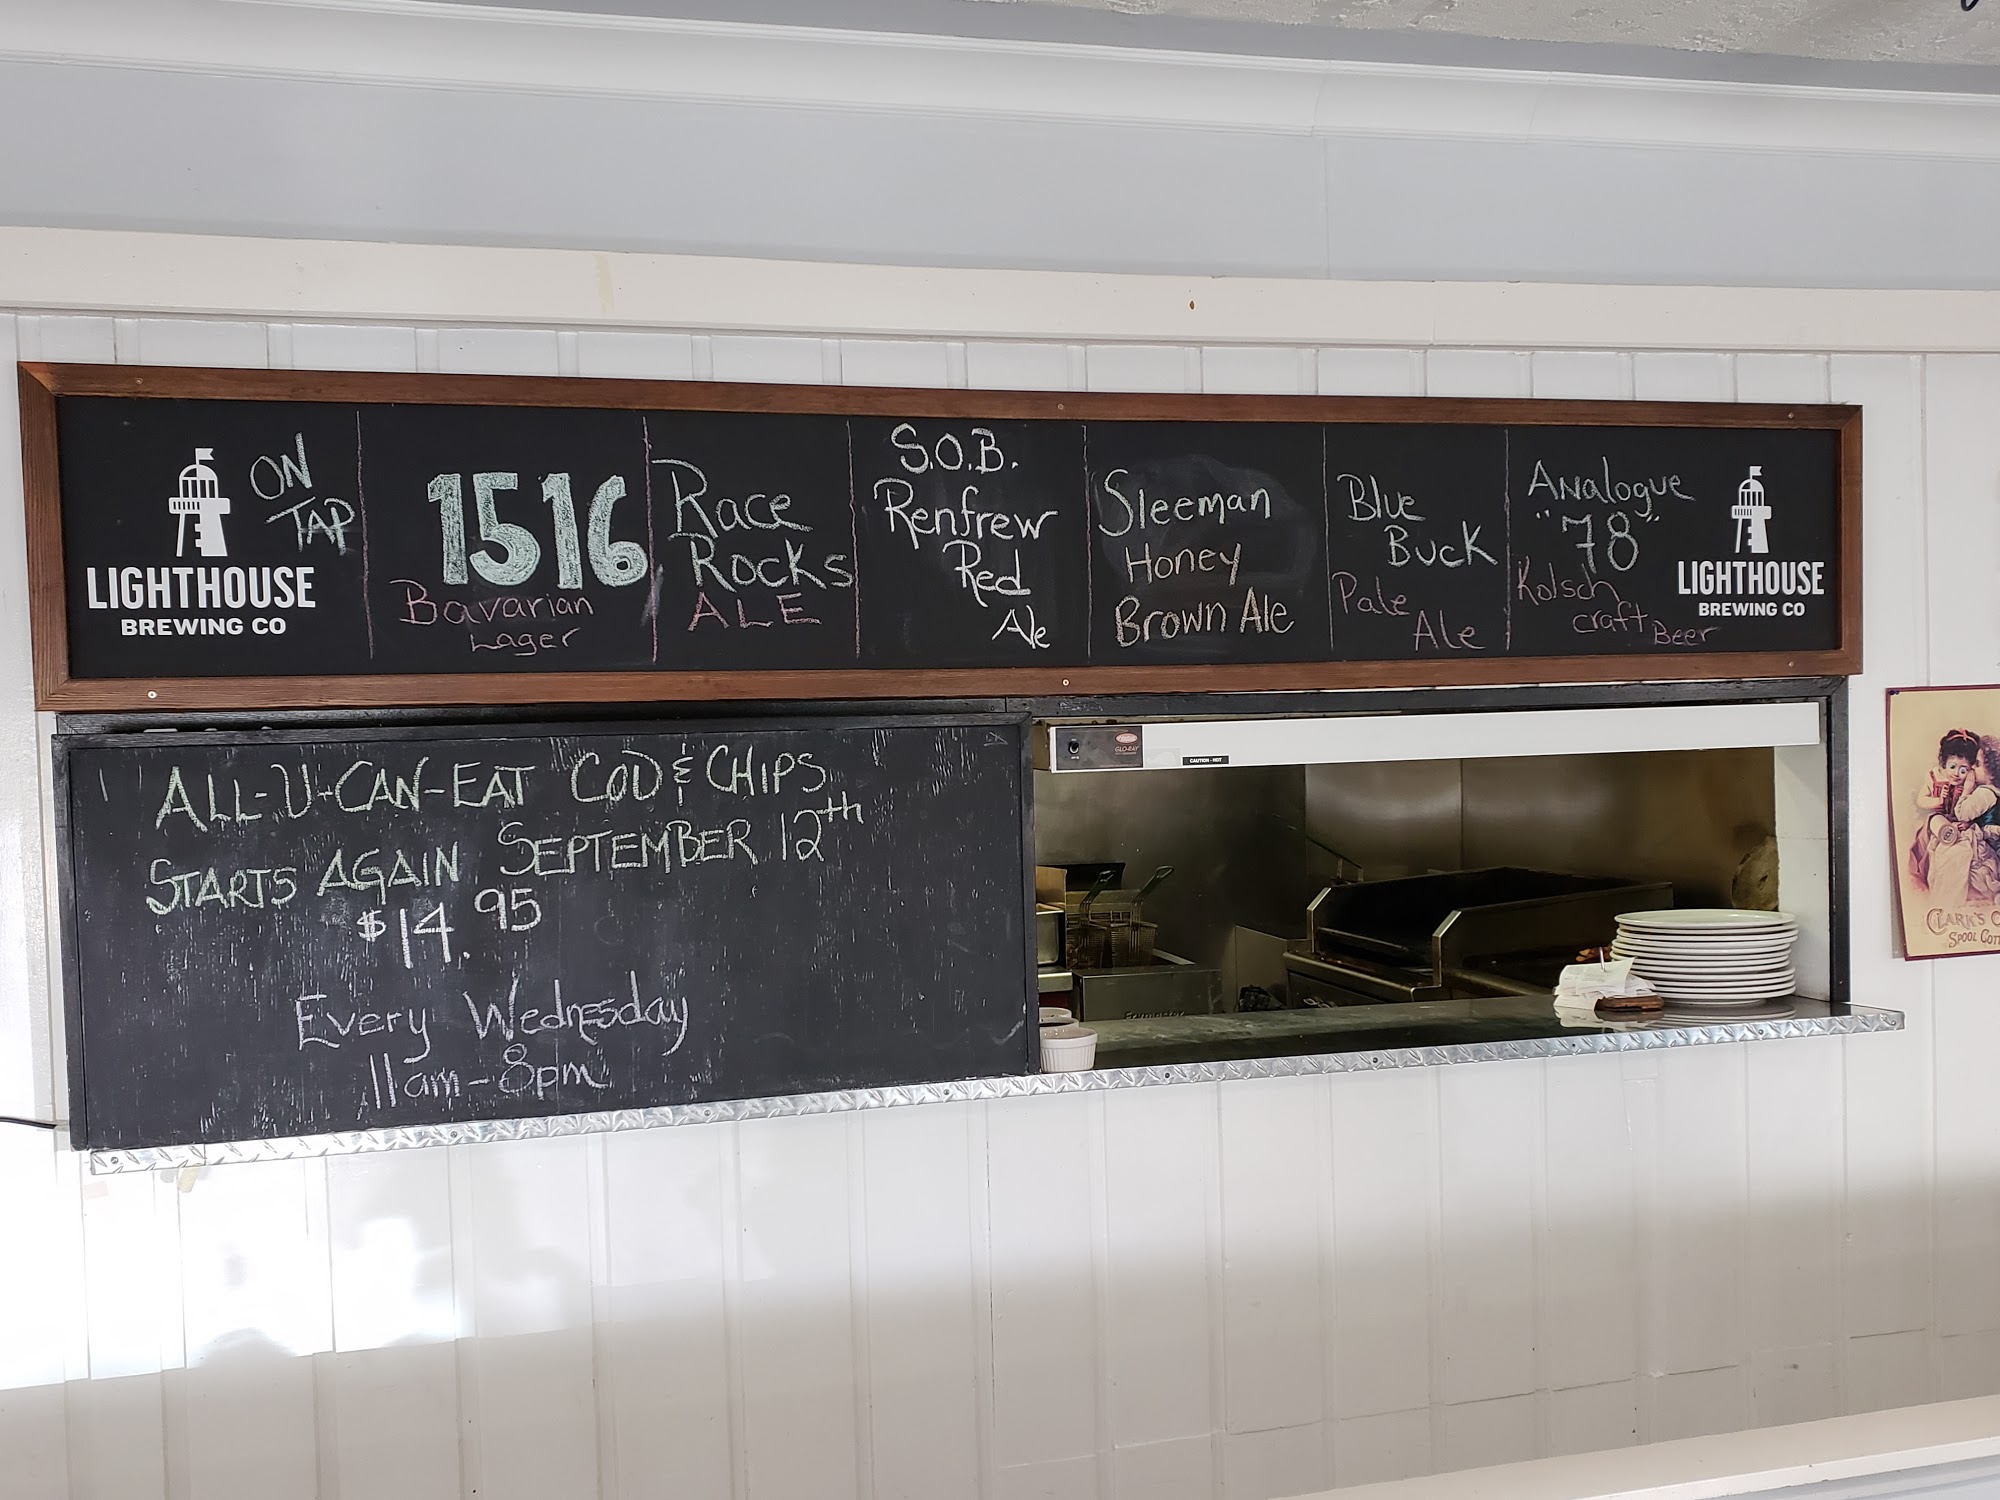 LIGHTHOUSE
BREWING CO
ON
TAP
1516
Bavarian
Lager
Race
Rocks
ALE
S.O.B.
Renfrew
Red
Ale
Sleeman
Honey
Brown Ale
Blue
Buck
Pale
Ale
Analogue
"78"
Kolsch
craft Beer
LIGHTHOUSE
BREWING CO
ALL-U-CAN-EAT COD & CHIPS
STARTS AGAIN SEPTEMBER 12th
$14.95
Every Wednesday
11am-8pm
GLO-RAY
CAUTION - HOT
Frymaster
CLARK'S
SPOOL